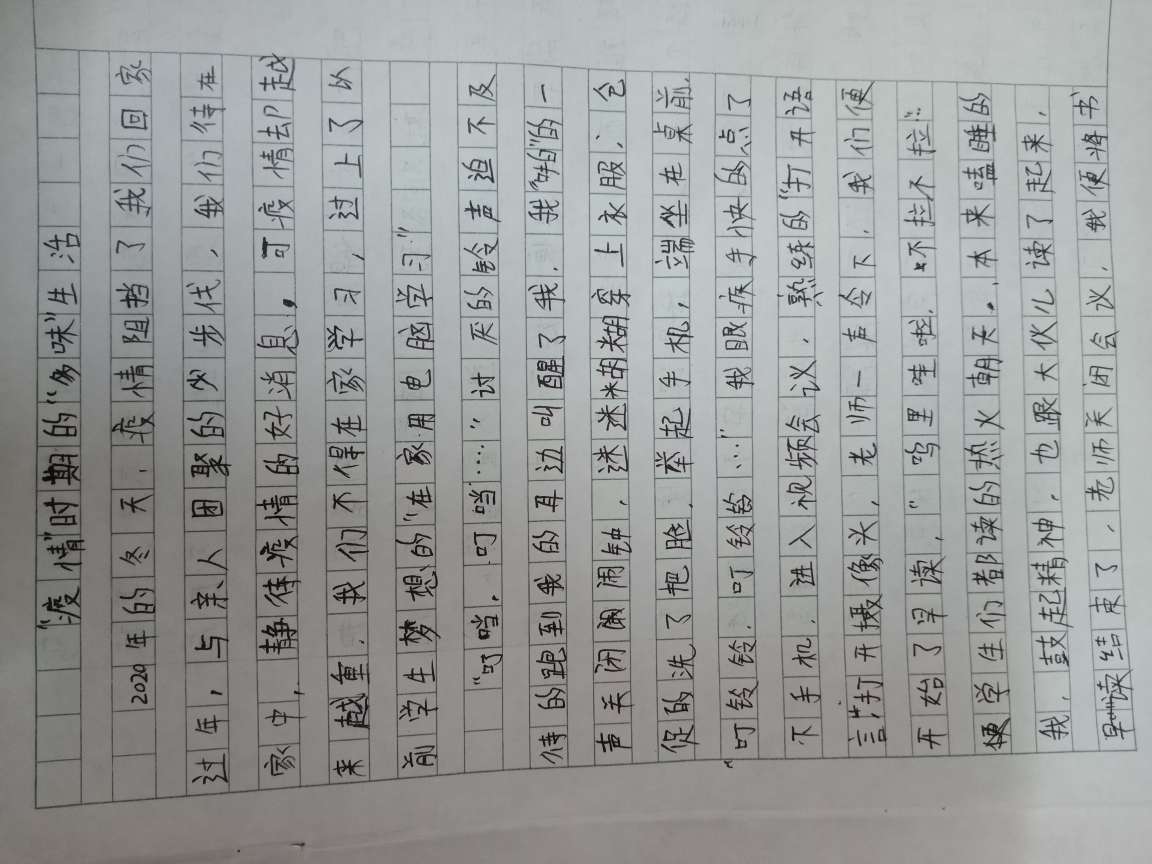 “疫情”时期的“多味”生活
2020年的冬天，疫情阻挡了我们回家
过年，与亲人团聚的少步伐，我们待在
家中，静待疫情的好消息，可疫情却越
来越重，我们不得在家学习，过上了以
前学生梦想的“在家用电脑学习”
“叮当，叮当……”讨厌的铃声迫不及
待的跑到我的耳边叫醒了我，我“啪”的一
声关闭闹钟，迷迷糊糊穿上衣服，仓
促的洗了把脸，举起手机，端坐在桌前，
“叮铃铃，叮铃铃……”我眼疾手快的点了
下手机，进入视频会议，熟练的“打开语
言”“打开摄像头，老师一声令下，我们便
开始了早读，“呜里哇啦，不拉不拉”
学生们都读的热火朝天，本来嗑睡的
我，鼓起精神，也跟大伙儿读了起来，
早读结束了，老师关闭会议，我便将书